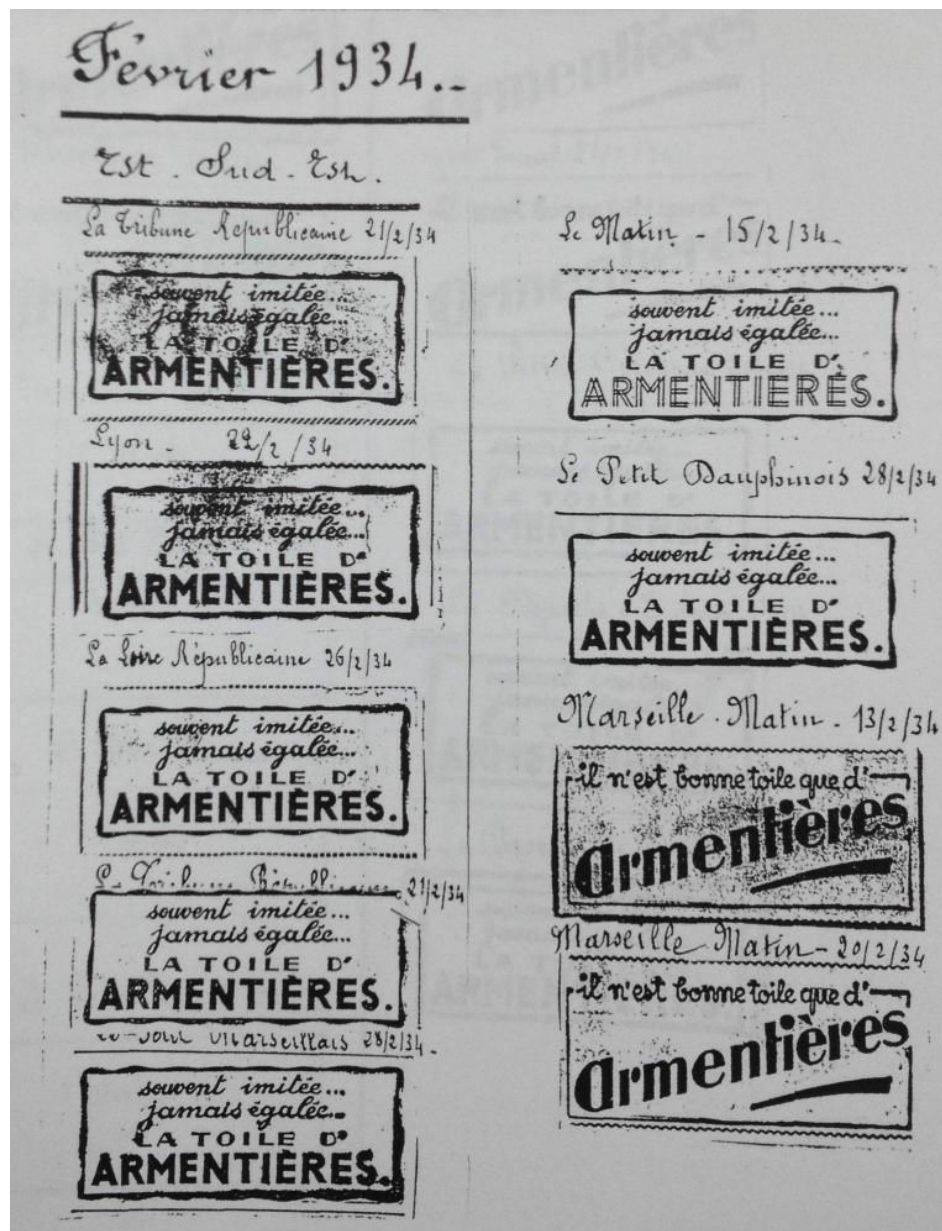 Février 1934..
Est . Sud - Est.
La Tribune Republicaine 21/2/34
souvent imitée...
jamais égalée...
LA TOILE D'
ARMENTIÈRES.
Lyon - 22/2/34
souvent imitée...
jamais égalée...
LA TOILE D'
ARMENTIÈRES.
La Loire Républicaine 26/2/34
souvent imitée...
jamais égalée...
LA TOILE D'
ARMENTIÈRES.
La Tribune Républicaine 21/2/34
souvent imitée...
jamais égalée...
LA TOILE D'
ARMENTIÈRES.
Marseillais 28/2/34.
souvent imitée...
jamais égalée...
LA TOILE D'
ARMENTIÈRES.
Le Matin - 15/2/34.
souvent imitée...
jamais égalée...
LA TOILE D'
ARMENTIERES.
Le Petit Dauphinois 28/2/34
souvent imitée...
jamais égalée...
LA TOILE D'
ARMENTIÈRES.
Marseille . Matin - 13/2/34
il n'est bonne toile que d'
Armentières
Marseille Matin - 20/2/34
il n'est bonne toile que d'
Armentières